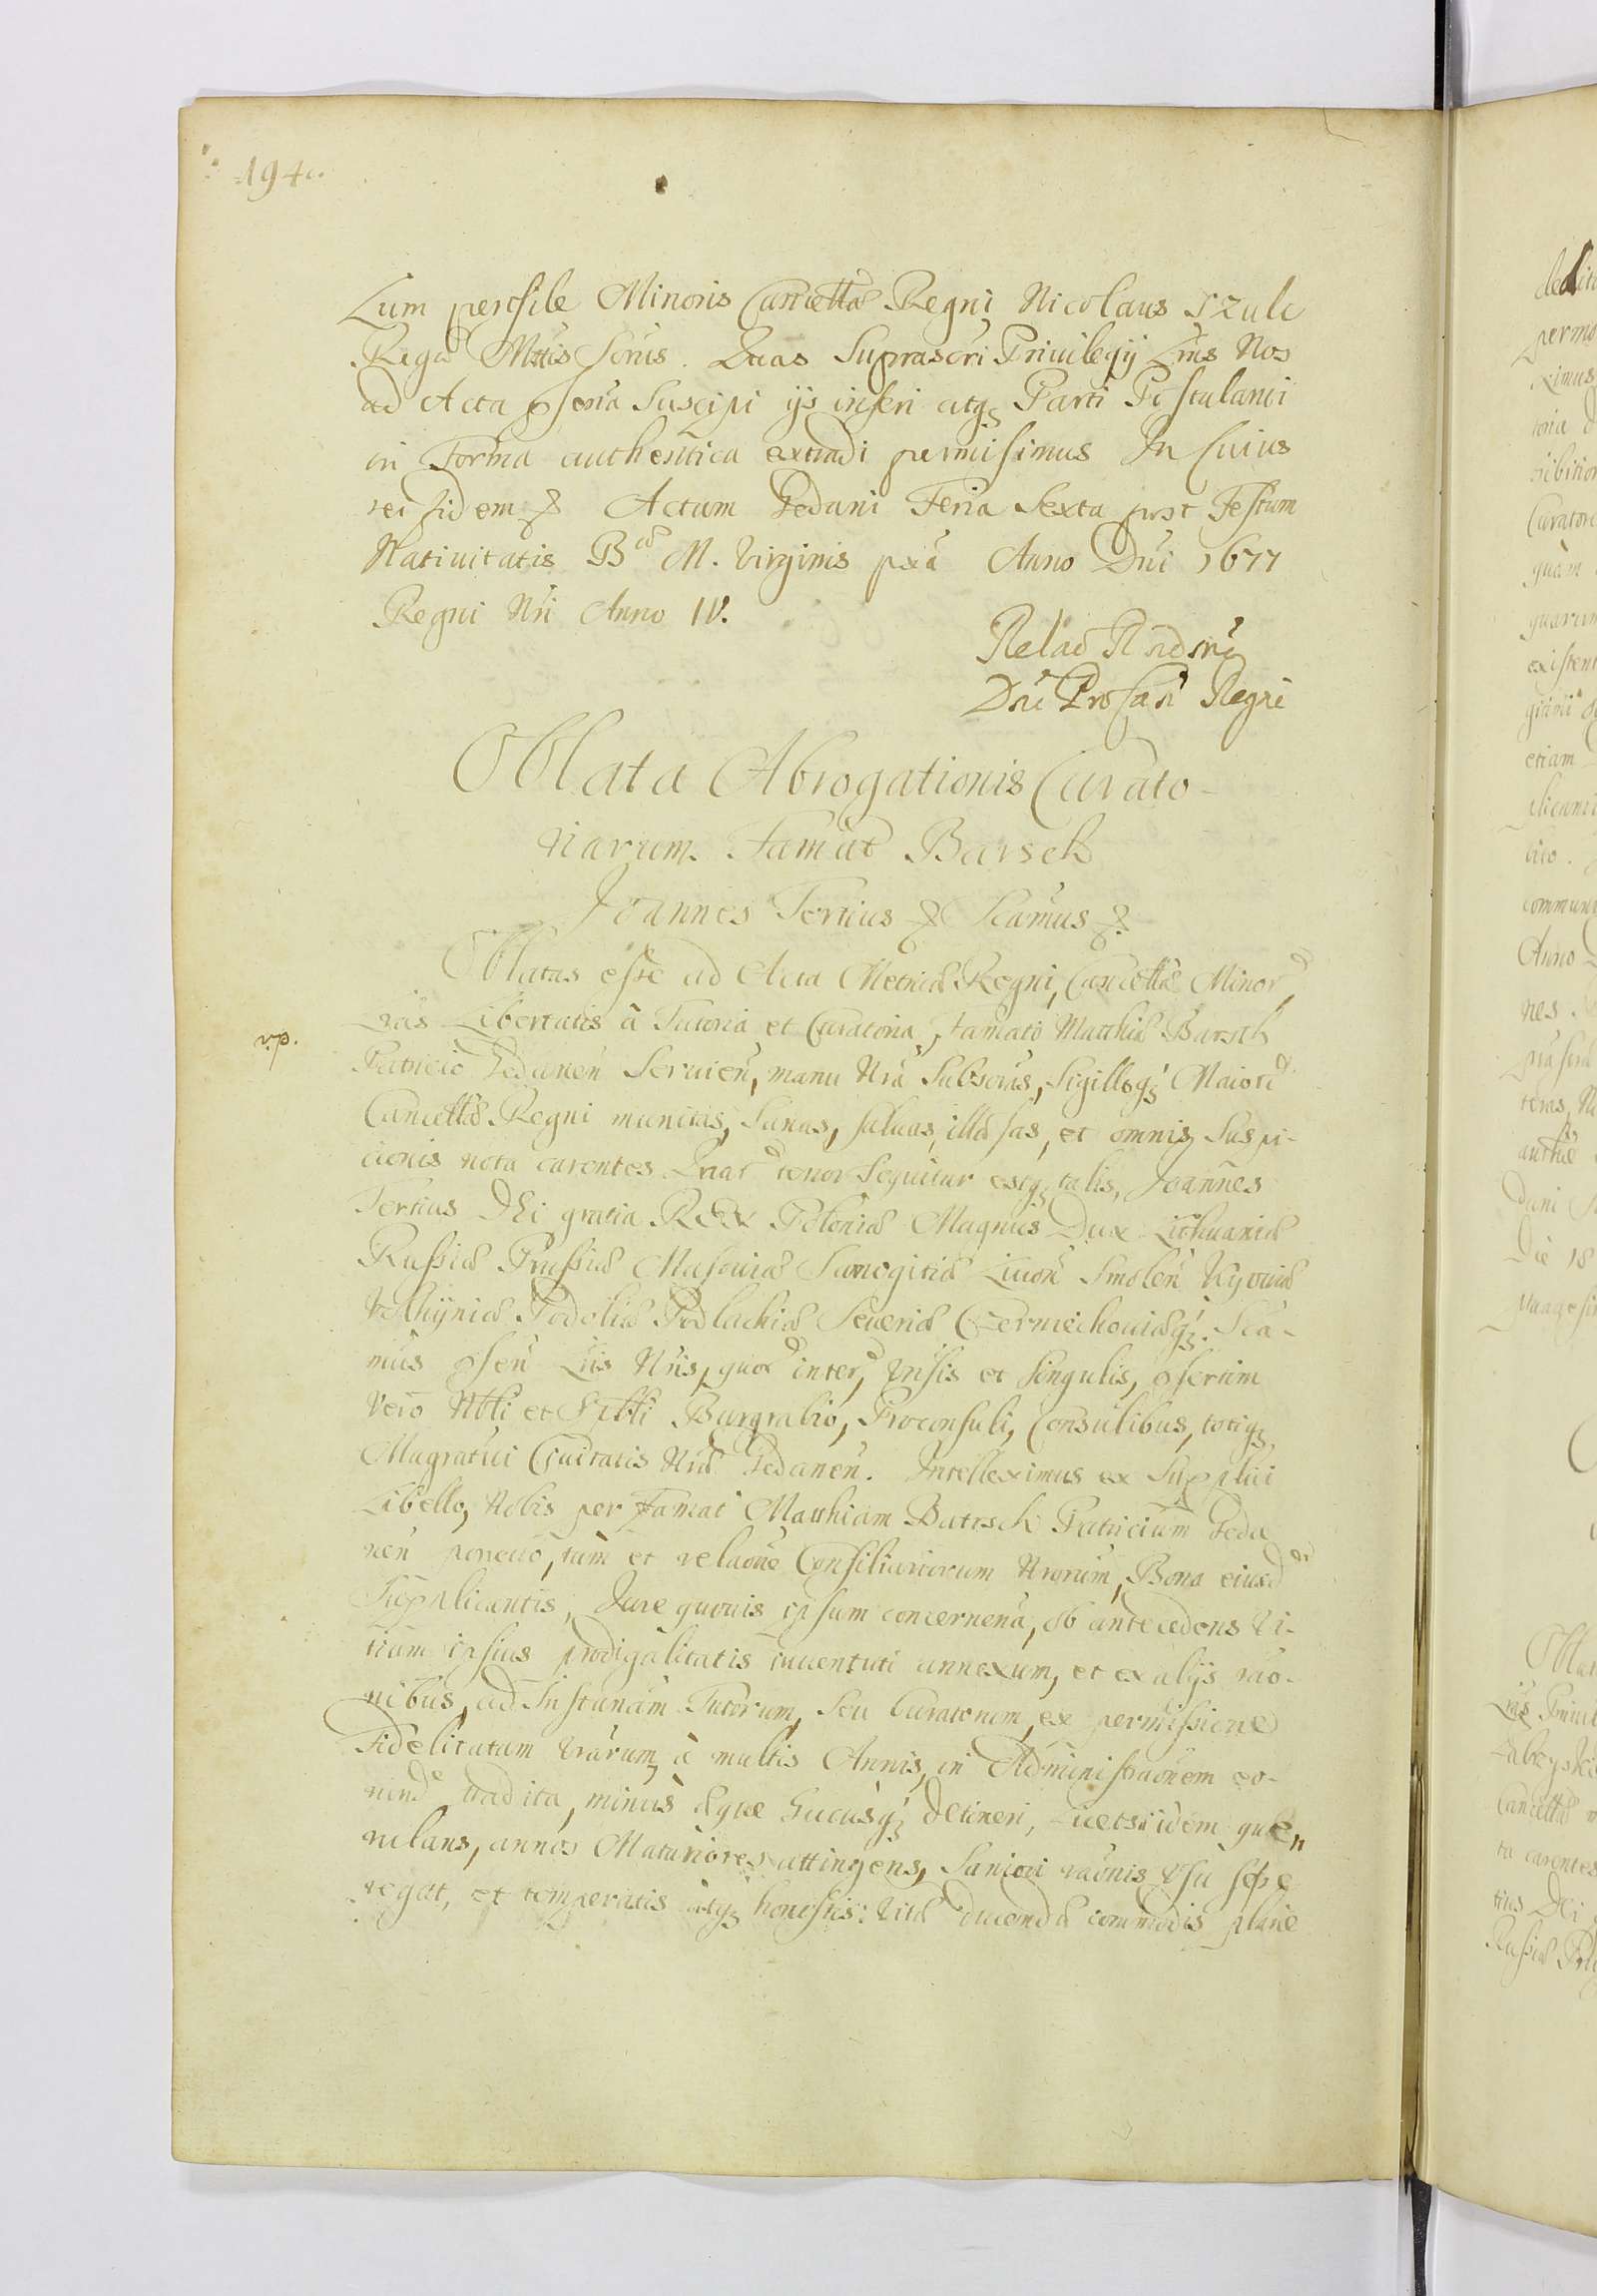 194.
Lum pensile Minoris Cancellæ Regni Nicolaus Szulc
Regiæ Mttis Scrius. Quas Suprascri Privilegij Lras Nos
ad Acta pseria Suscipi ijs inseri atqz Parti Postulanti
in Forma authentica extradi permisimus In Cuius
rei fidem & Actum Gedani Feria Sexta post Festum
Nativitatis Bæ M. Virginis pxa Anno Dni 1677
Regni Nri Anno IV.
Relao Rndmi
Dni ProCan Regni
Oblata Abrogationis Curato-
riarum Famat Barsch
Joannes Tertius & Scamus &
Oblatas esse ad Acta Metricæ Regni, Cancellæ Minor
Lras Libertatis à Tutoria et Curatoria, famato Matthiæ Barsch
v.p.
Patricio Gedanen Servien, manu Nra Subscrias, Sigilloqz Maiori
Cancellæ Regni munitas, Sanas, saluas, illæsas, et omnis Suspi-
cionis nota carentes Quar tenor Sequitur estqz talis, Joannes
Tertius DEi gratia REX Poloniæ Magnus Dux Lithuaniæ
Russiæ Prussiæ Masouiæ Samogitiæ Liuon Smolen Kyouiæ
Volhyniæ Podoliæ Podlachiæ Seueriæ Czerniechouiæqz. Sca-
mus psen Lris Nris, quor inter, Vnsis et singulis, pserim
vero Nbli et Sptbli Burgrabio, Proconsuli, Consulibus, totiqz
Magratui Ciuitatis Nræ Gedanen. Intelleximus ex Supplici
Libello, Nobis per Famat Matthiam Batrsch Patricium Geda
nen porrecto, tum et relaone Consiliariorum Nrorum, Bona eiusd
Supplicantis, Jure quouis ipsum concernena, ob antecedens Vi-
tium ipsius prodigalitatis iuuentuti annexum, et ex alijs rao-
nibus, ad Instantiam Tutorum, seu Curatorum, ex permissione
Fidelitatum Vrarum, à multis Annis, in Administraonem eo-
rund tradita, minus æque hucusqz detineri, Licet siidem que
rulans, annos Maturiores attingens, Saniori raonis Vsu sese
regat, et temperatis atqz honestis Vitæ ducendæ commodis plane